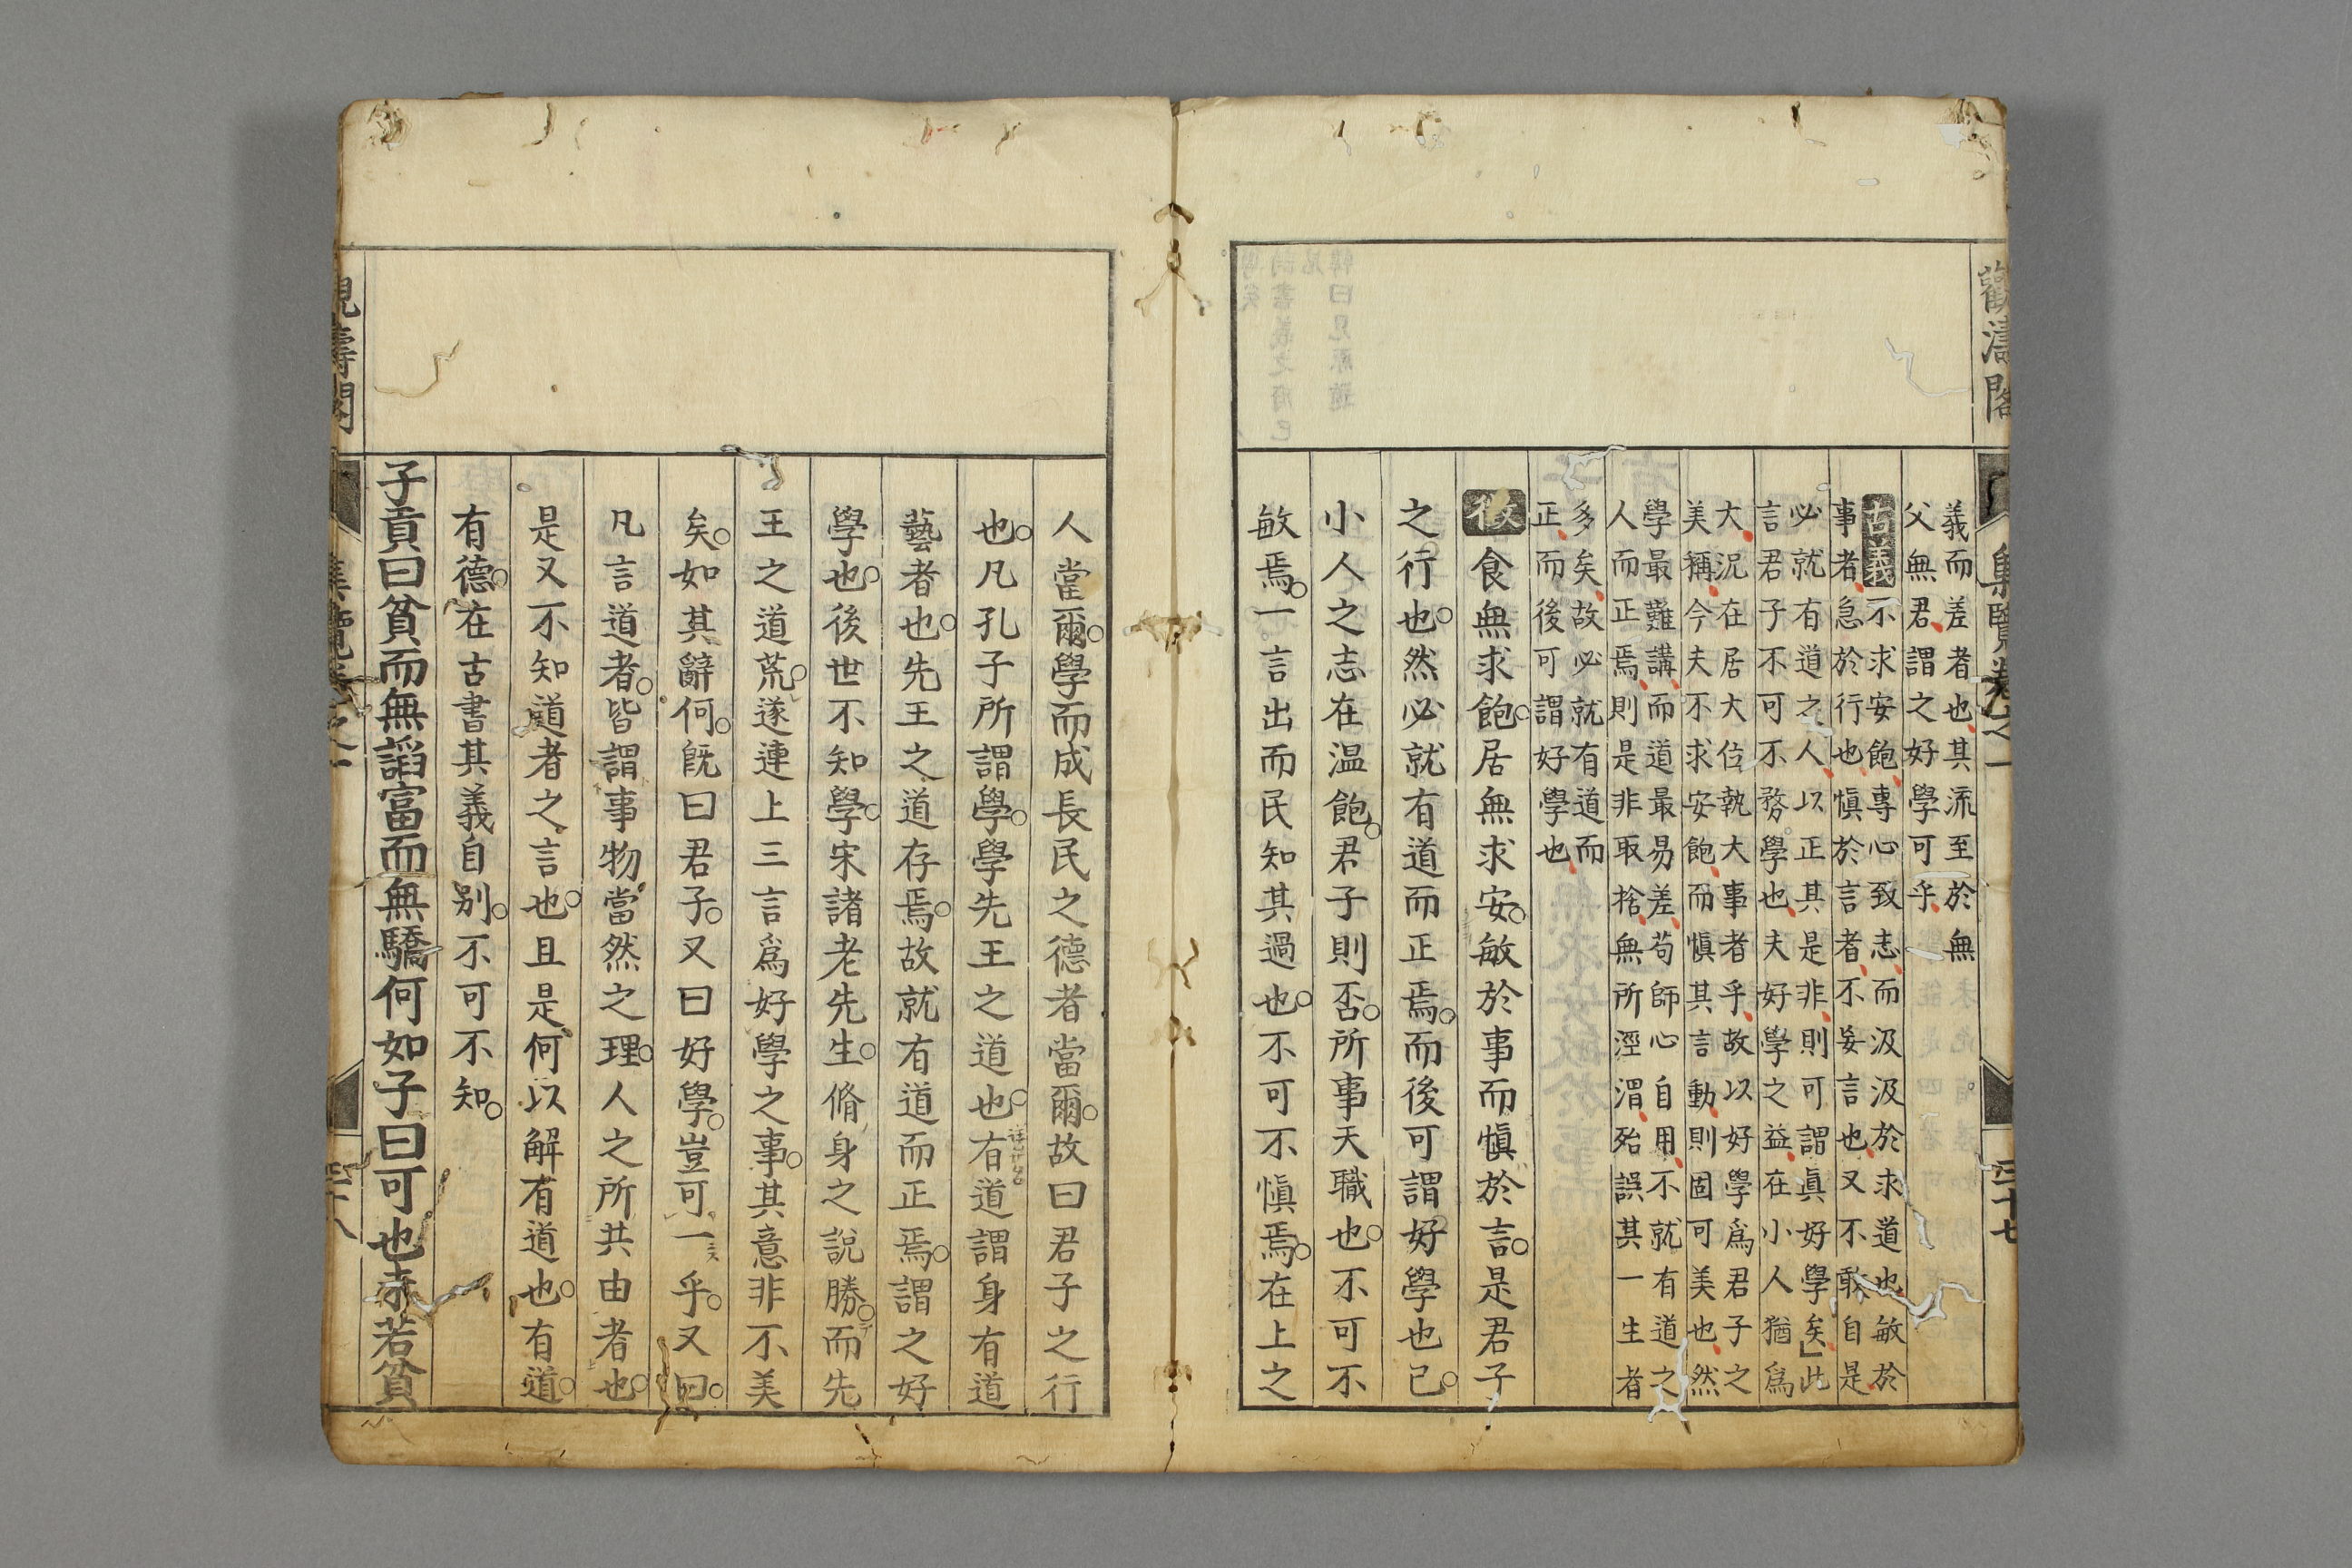 觀濤閣
集覽卷之一
三十七
義而差者也其流至於無
父無君謂之好學可乎
古義 不求安飽專心致志而汲汲於求道也敏於
事者急於行也愼於言者不妄言也又不敢自是
必就有道之人以正其是非則可謂眞好學矣」此
言君子不可不務學也夫好學之益在小人猶爲
大况在居大位執大事者乎故以好學爲君子之
美稱今夫不求安飽而愼其言動則固可美也然
學最難講而道最易差苟師心自用不就有道之
人而正焉則是非取捨無所涇渭殆誤其一生者
多矣故必就有道而
正而後可謂好學也
徴 食無求飽居無求安敏於事而愼於言是君子
之行也然必就有道而正焉而後可謂好學也已
小人之志在温飽君子則否所事天職也不可不
敏焉一言出而民知其過也不可不愼焉在上之
人當爾學而成長民之德者當爾故曰君子之行
也凡孔子所謂學學先王之道也有道謂身有道
藝者也先王之道存焉故就有道而正焉謂之好
學也後世不知學宋諸老先生脩身之說勝而先
王之道荒遂連上三言爲好學之事其意非不美
矣如其辭何旣曰君子又曰好學豈可一乎又曰
凡言道者皆謂事物當然之理人之所共由者也
是又不知道者之言也且是何以解有道也有道
有德在古書其義自别不可不知
子貢曰貧而無謟富而無驕何如子曰可也未若貧
觀濤閣
集覽卷之一
三十八